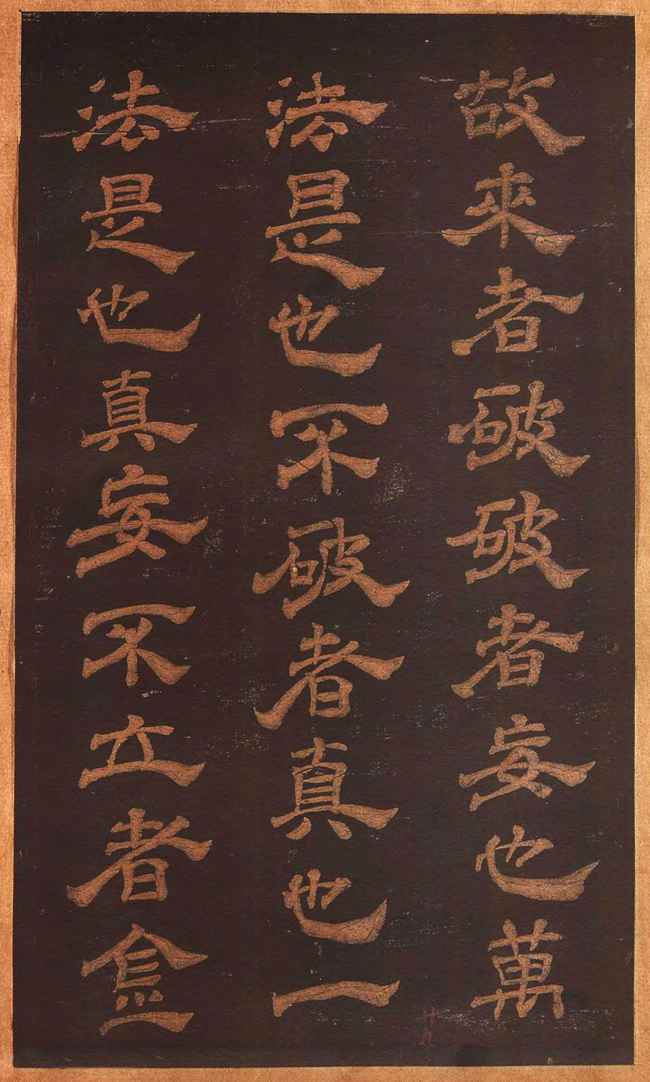 故來者破破者妄也萬
法是也不破者真也一
法是也真妄不立者金